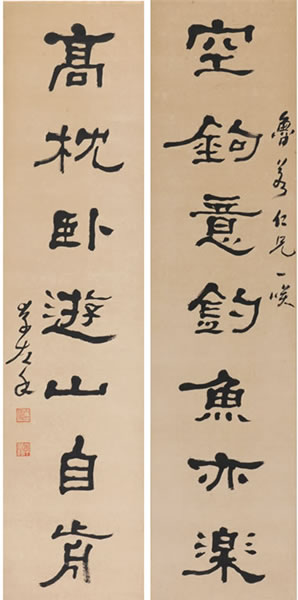 空鉤意釣魚亦樂
魯仁兄一咲
高枕卧遊山自歬
左手